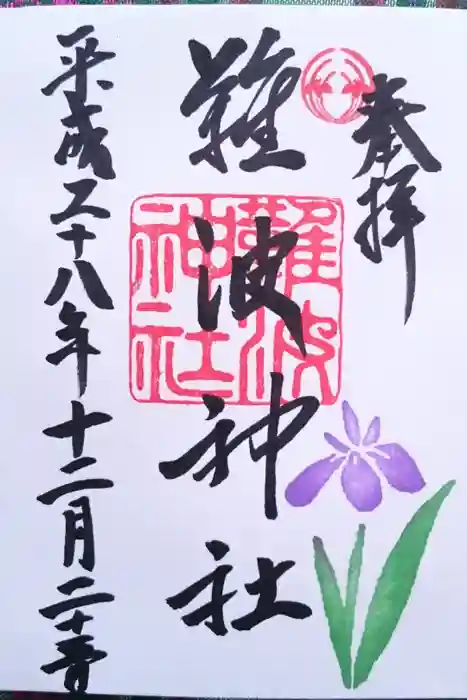 奉拝
難波神社
難波神社
平成二十八年十二月二十五日